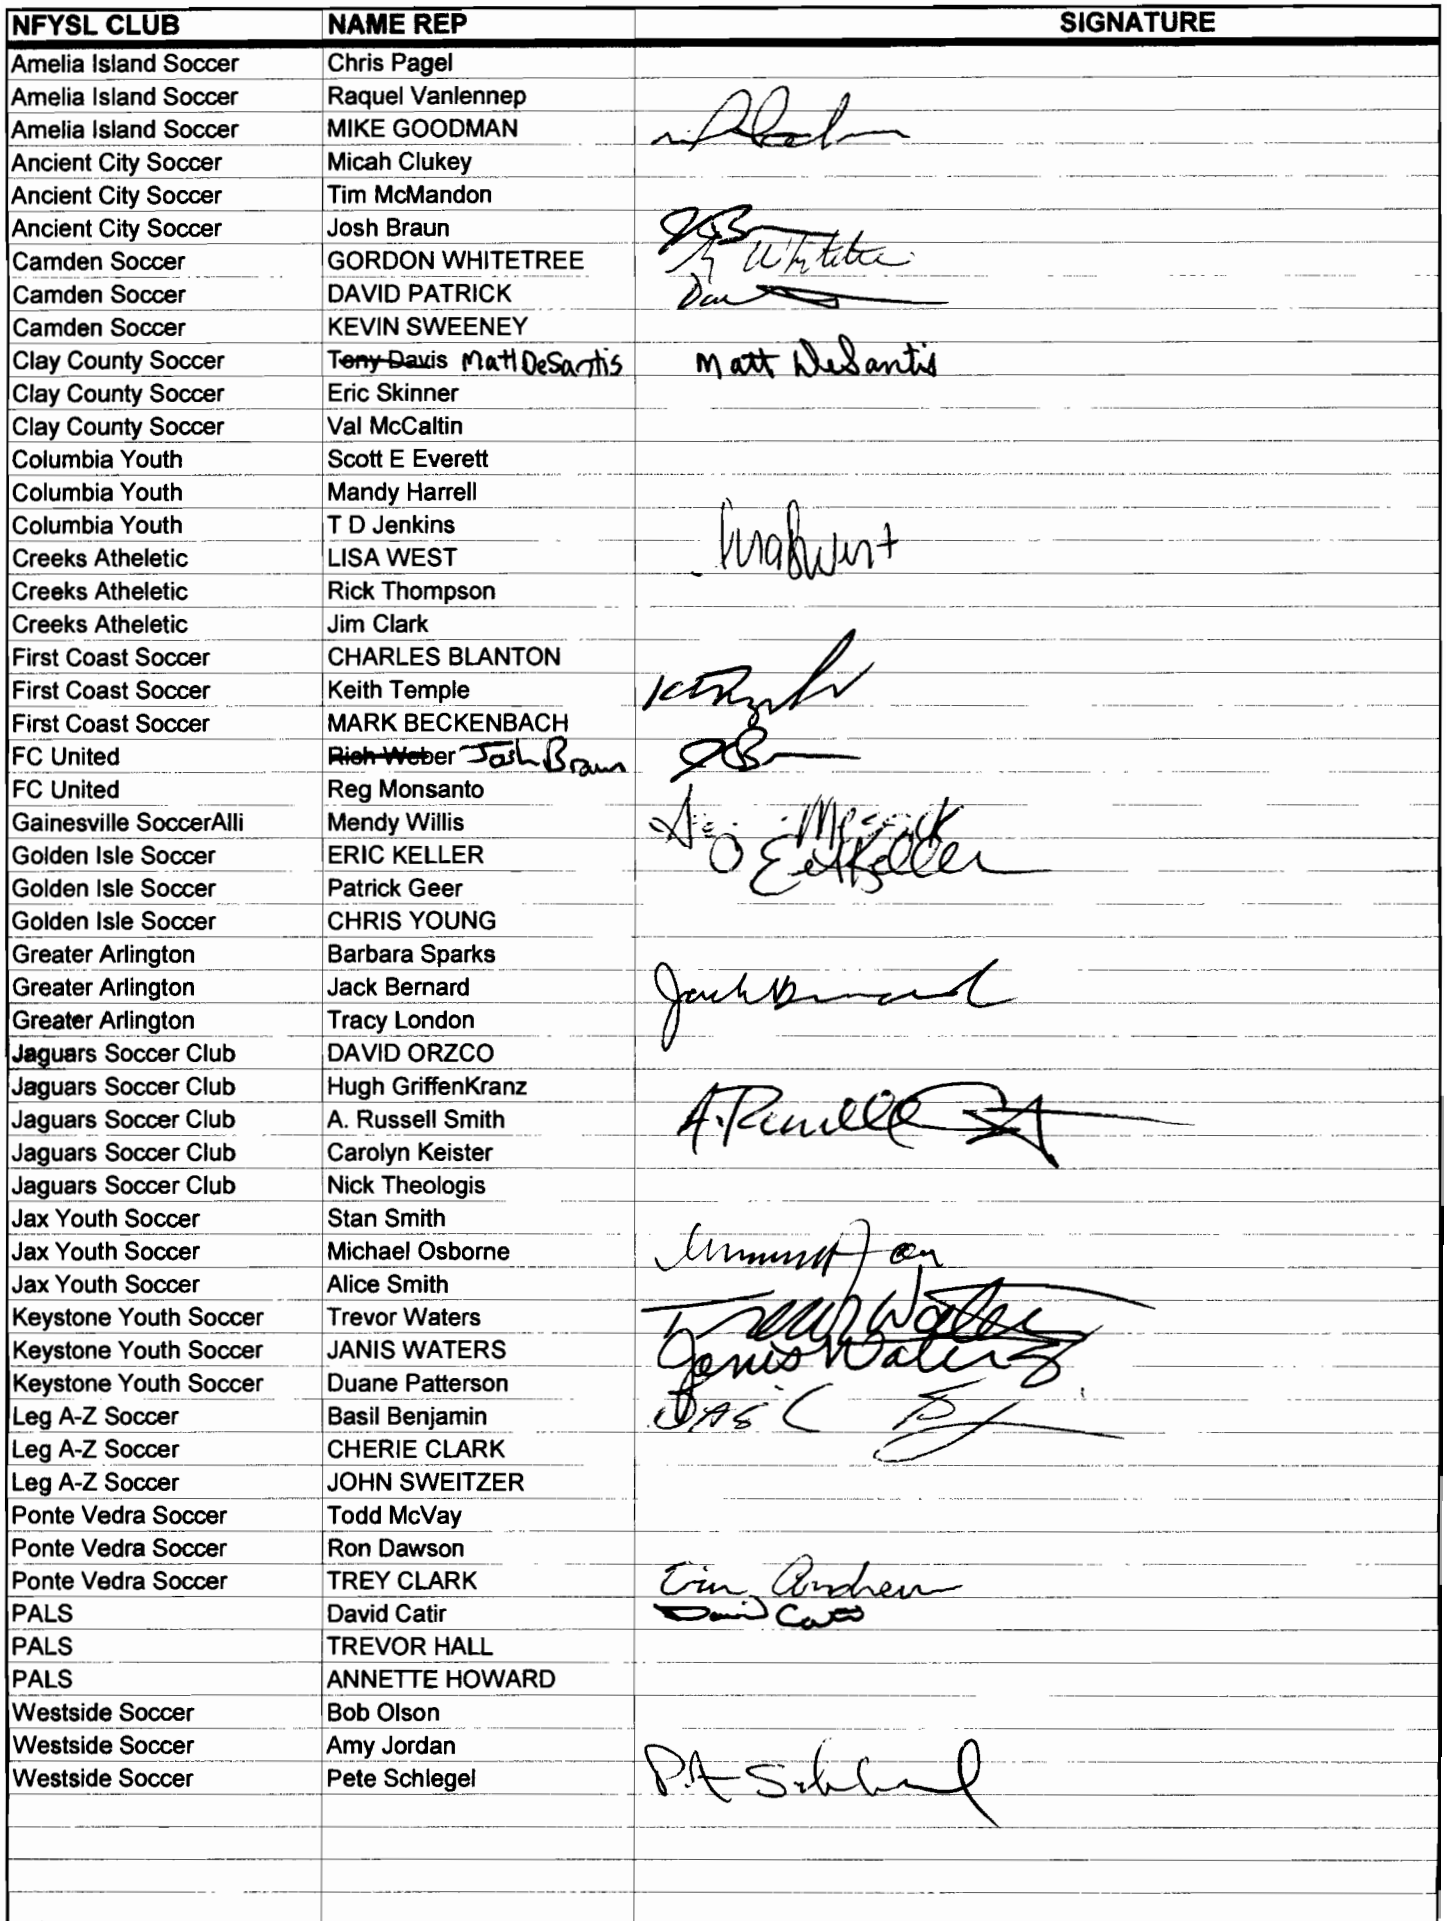 NFYSL CLUB NAME REP SIGNATURE
Amelia Island Soccer Chris Pagel
Amelia Island Soccer Raquel Vanlennep
Amelia Island Soccer MIKE GOODMAN
Ancient City Soccer Micah Clukey
Ancient City Soccer Tim McMandon
Ancient City Soccer Josh Braun
Camden Soccer GORDON WHITETREE
Camden Soccer DAVID PATRICK
Camden Soccer KEVIN SWEENEY
Clay County Soccer Tony Davis Matt DeSantis Matt DeSantis
Clay County Soccer Eric Skinner
Clay County Soccer Val McCaltin
Columbia Youth Scott E Everett
Columbia Youth Mandy Harrell
Columbia Youth T D Jenkins
Creeks Atheletic LISA WEST
Creeks Atheletic Rick Thompson
Creeks Atheletic Jim Clark
First Coast Soccer CHARLES BLANTON
First Coast Soccer Keith Temple
First Coast Soccer MARK BECKENBACH
FC United Rich Weber Josh Braun
FC United Reg Monsanto
Gainesville SoccerAlli Mendy Willis
Golden Isle Soccer ERIC KELLER
Golden Isle Soccer Patrick Geer
Golden Isle Soccer CHRIS YOUNG
Greater Arlington Barbara Sparks
Greater Arlington Jack Bernard Jack Bernard
Greater Arlington Tracy London
Jaguars Soccer Club DAVID ORZCO
Jaguars Soccer Club Hugh GriffenKranz
Jaguars Soccer Club A. Russell Smith A. Russell
Jaguars Soccer Club Carolyn Keister
Jaguars Soccer Club Nick Theologis
Jax Youth Soccer Stan Smith
Jax Youth Soccer Michael Osborne
Jax Youth Soccer Alice Smith
Keystone Youth Soccer Trevor Waters Trevor Waters
Keystone Youth Soccer JANIS WATERS Janis Waters
Keystone Youth Soccer Duane Patterson
Leg A-Z Soccer Basil Benjamin
Leg A-Z Soccer CHERIE CLARK
Leg A-Z Soccer JOHN SWEITZER
Ponte Vedra Soccer Todd McVay
Ponte Vedra Soccer Ron Dawson
Ponte Vedra Soccer TREY CLARK
PALS David Catir David Catir
PALS TREVOR HALL
PALS ANNETTE HOWARD
Westside Soccer Bob Olson
Westside Soccer Amy Jordan
Westside Soccer Pete Schlegel